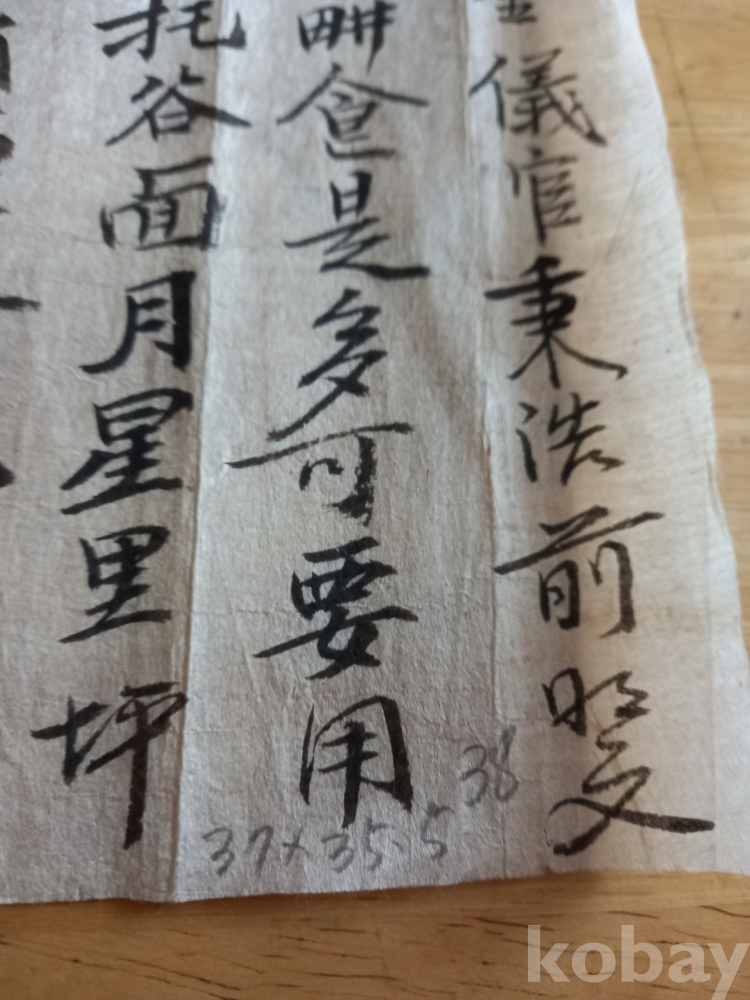 儀官秉浩前明文
畊食是多可要用
托谷面月星里坪
38
37x35.5
kobay